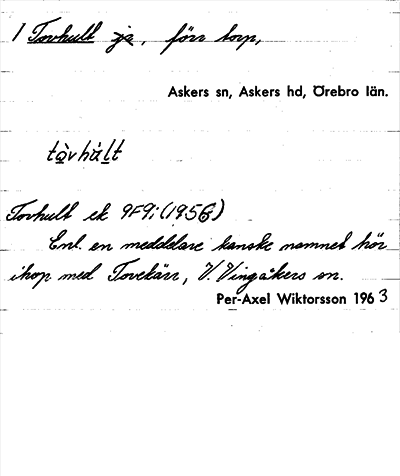 1 Tovhult ja, förr torp,
Askers sn, Askers hd, Örebro län.
tàvhàlt
Tovhult ek 9F9i (1956)
Enl. en meddelare kanske namnet hör
ihop med Tovekärr, V. Vingåkers sn.
Per-Axel Wiktorsson 1963